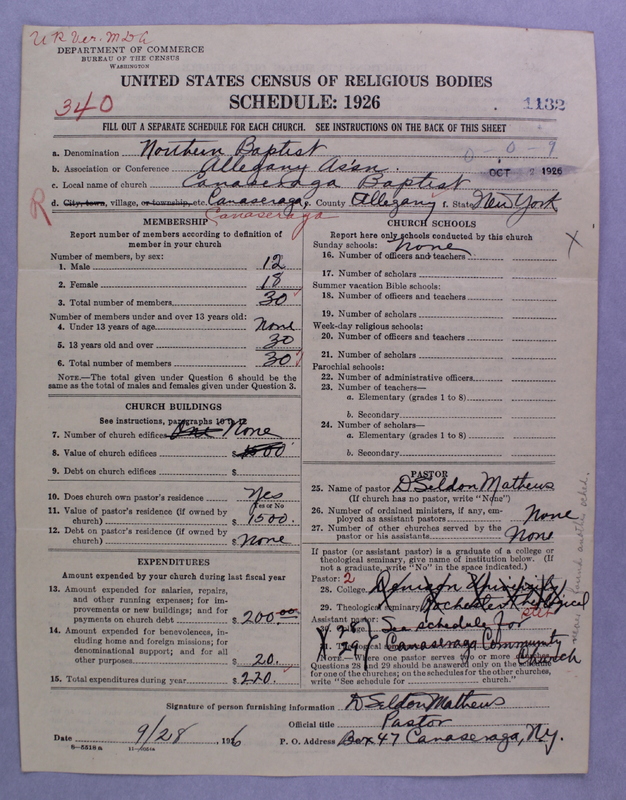 U R Ver. M.D.A
DEPARTMENT OF COMMERCE
BUREAU OF THE CENSUS
WASHINGTON
UNITED STATES CENSUS OF RELIGIOUS BODIES
340 SCHEDULE: 1926 1132
FILL OUT A SEPARATE SCHEDULE FOR EACH CHURCH. SEE INSTRUCTIONS ON THE BACK OF THIS SHEET
a. Denomination Northern Baptist 0-0-9
b. Association or Conference Allegany Ass'n. OCT 2 1926
c. Local name of church Canaseraga Baptist
R d. City, town, village, or township, etc. Canaseraga, County Allegany f. State New York
Canaseraga
MEMBERSHIP
Report number of members according to definition of
member in your church
Number of members, by sex:
1. Male 12
2. Female 18
3. Total number of members 30
Number of members under and over 13 years old:
4. Under 13 years of age None
5. 13 years old and over 30
6. Total number of members 30
NOTE.—The total given under Question 6 should be the
same as the total of males and females given under Question 3.
CHURCH BUILDINGS
See instructions, paragraphs 10 to 12
7. Number of church edifices One None
8. Value of church edifices $
9. Debt on church edifices $
10. Does church own pastor's residence Yes
Yes or No
11. Value of pastor's residence (if owned by
church) $1500.
12. Debt on pastor's residence (if owned by
church) $None
EXPENDITURES
Amount expended by your church during last fiscal year
13. Amount expended for salaries, repairs,
and other running expenses; for im-
provements or new buildings; and for
payments on church debt $200.00
14. Amount expended for benevolences, in-
cluding home and foreign missions; for
denominational support; and for all
other purposes $20.
15. Total expenditures during year $220.
CHURCH SCHOOLS
Report here only schools conducted by this church
X
Sunday schools: None
16. Number of officers and teachers
17. Number of scholars
Summer vacation Bible schools:
18. Number of officers and teachers
19. Number of scholars
Week-day religious schools:
20. Number of officers and teachers
21. Number of scholars
Parochial schools:
22. Number of administrative officers
23. Number of teachers—
a. Elementary (grades 1 to 8)
b. Secondary
24. Number of scholars—
a. Elementary (grades 1 to 8)
b. Secondary
PASTOR
25. Name of pastor D Seldon Mathews
(If church has no pastor, write "None")
26. Number of ordained ministers, if any, em-
ployed as assistant pastors None
27. Number of other churches served by the
pastor or his assistants None
If pastor (or assistant pastor) is a graduate of a college or
theological seminary, give name of institution below. (If
not a graduate, write "No" in the space indicated.)
Pastor: 2
28. College Denison University
29. Theological seminary Rochester Theological
Assistant pastor:
X 28 See schedule for
29 Canaseraga Community
Church
NOTE.—Where one pastor serves two or more churches,
Questions 28 and 29 should be answered only on the schedule
for one of the churches; on the schedules for the other churches,
write "See schedule for church."
Signature of person furnishing information D Seldon Mathews
Official title Pastor
Date 9/28, 1926 P. O. Address Box 47 Canaseraga, Ny.
8-5518 a